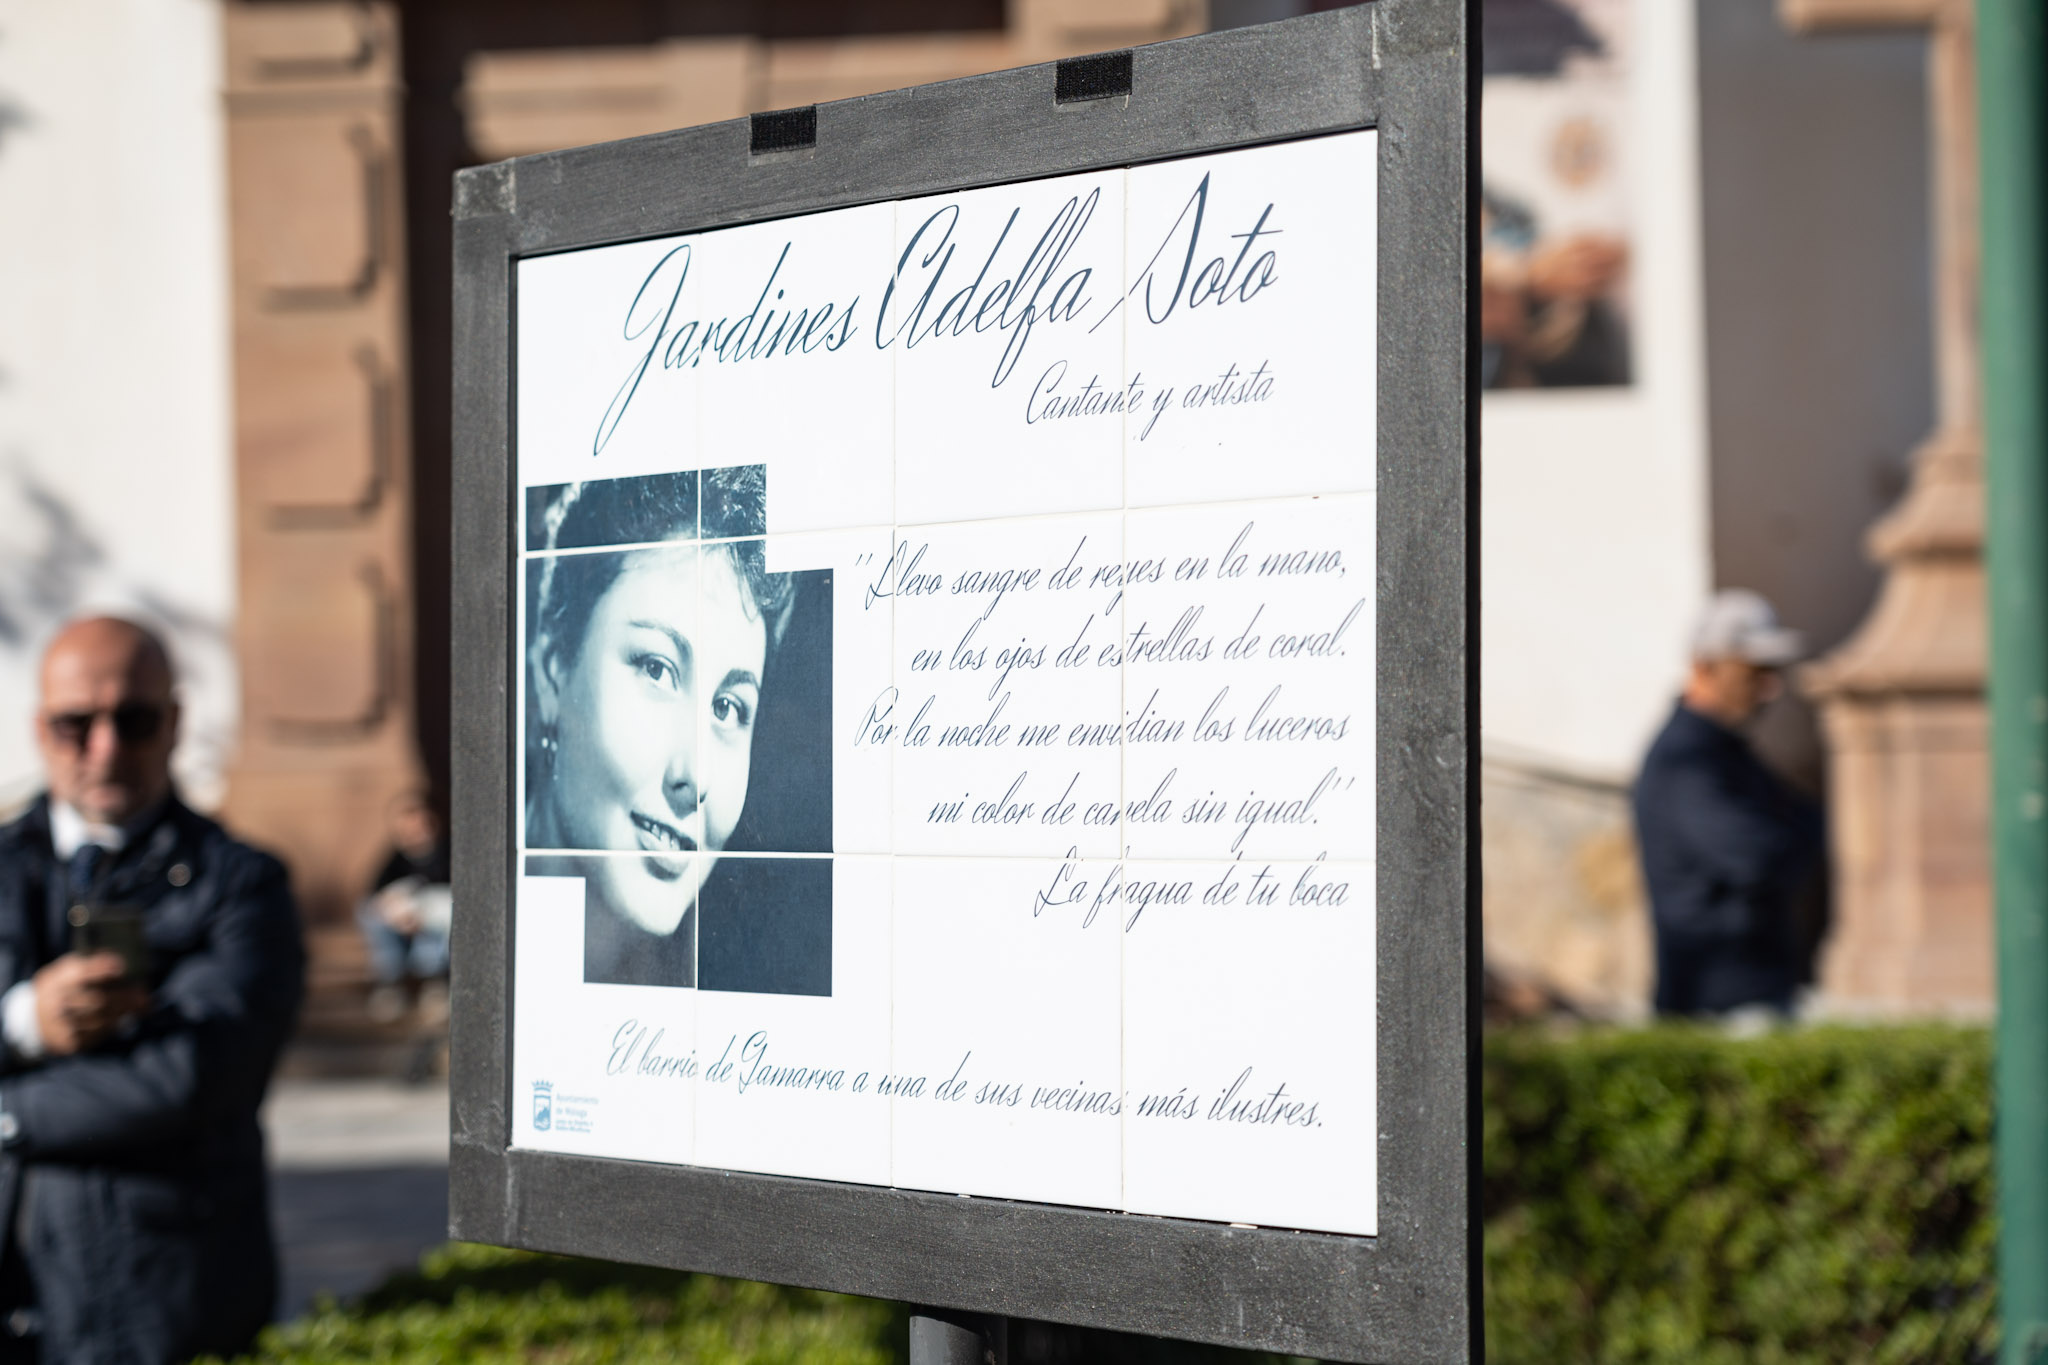 Jardines Adelfa Soto
Cantante y artista
"Llevo sangre de reyes en la mano,
en los ojos de estrellas de coral.
Por la noche me envidian los luceros
mi color de canela sin igual."
La fragua de tu boca
El barrio de Gamarra a una de sus vecinas más ilustres.
Ayuntamiento
de Málaga